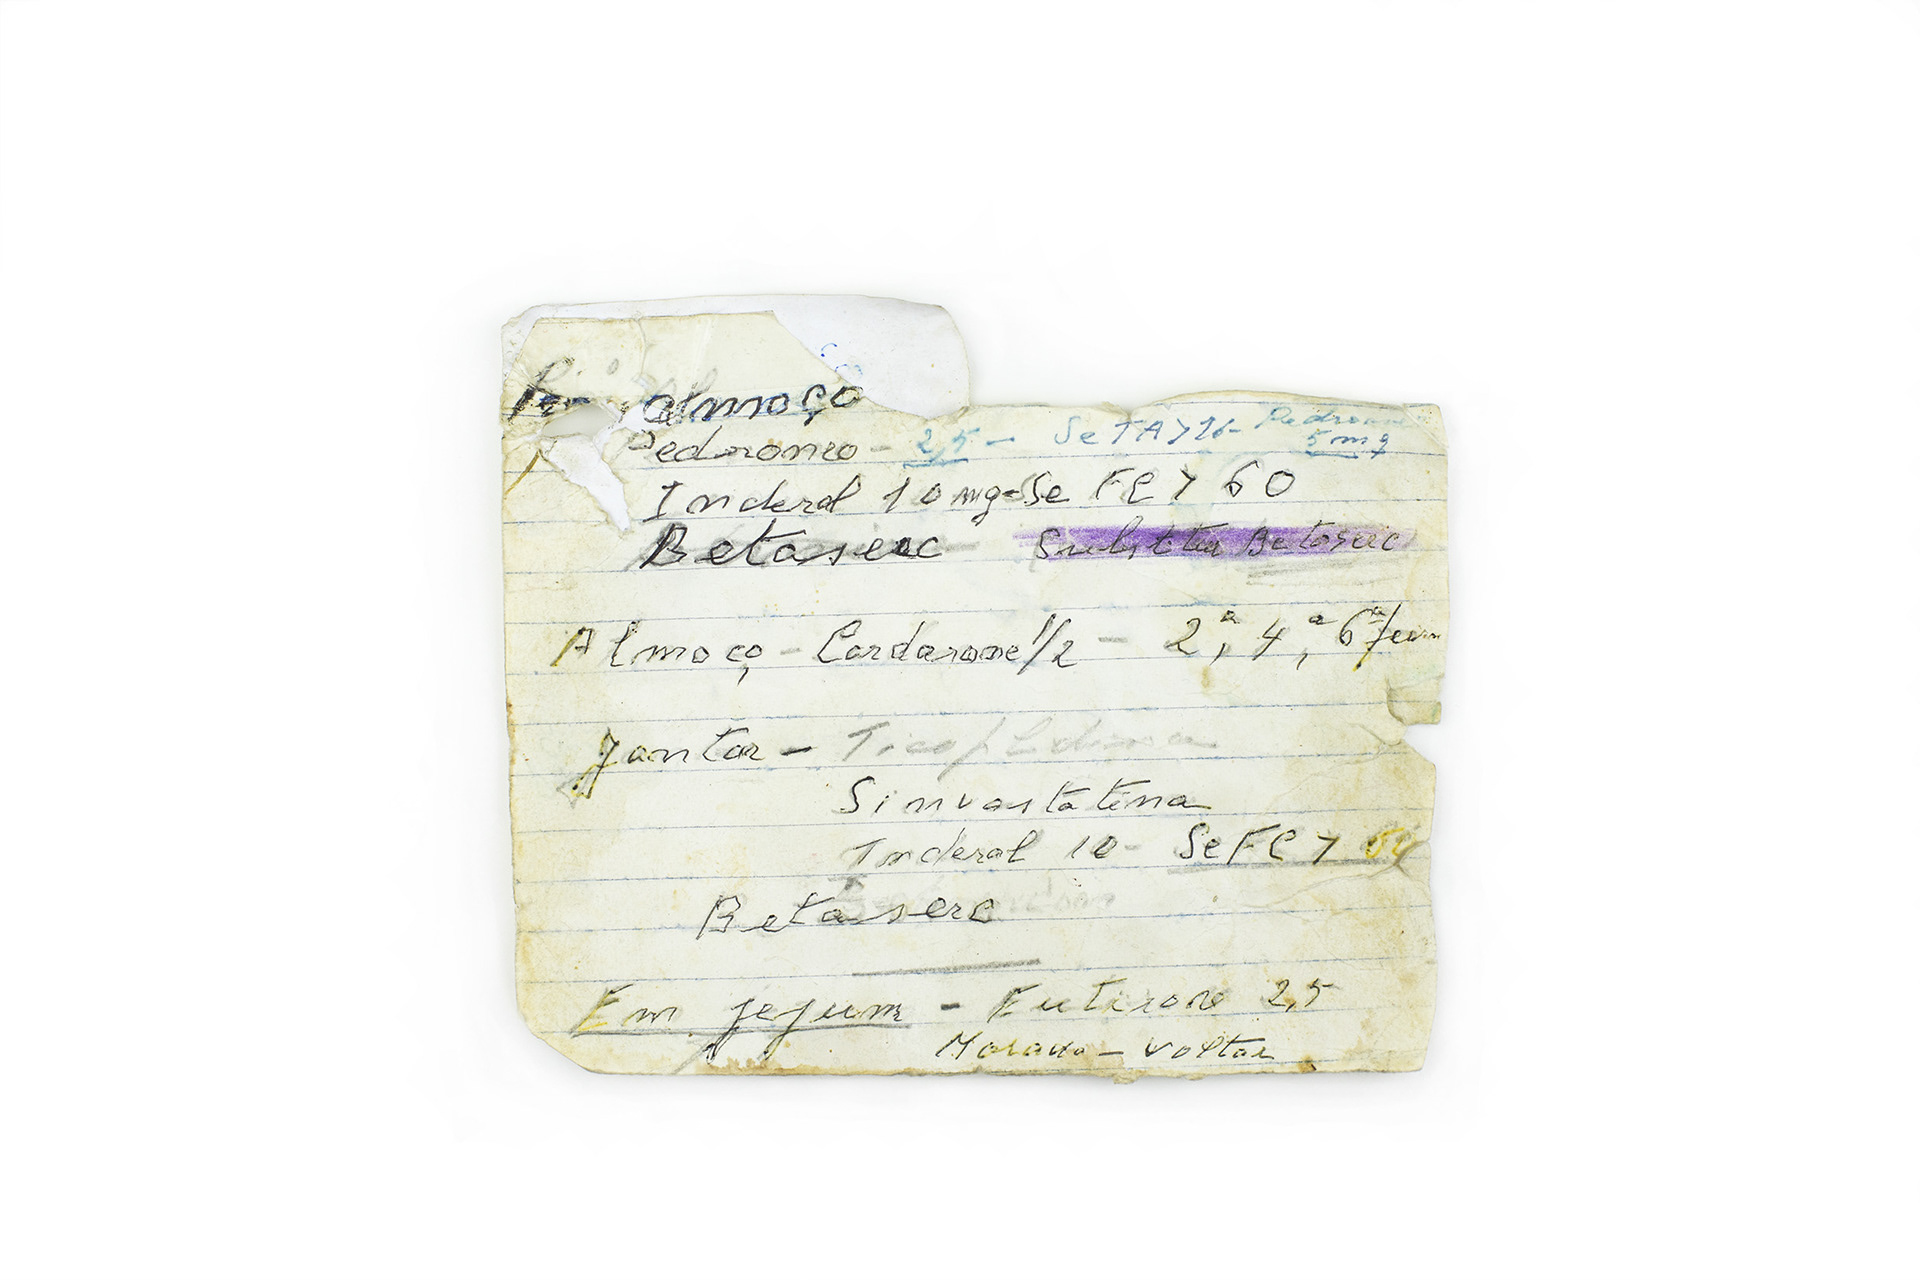 almoço
Pedroneo - 2,5 - Se TA > 16 - Pedroneo
5 mg
Inderal 10 mg - Se FC > 60
Betaserc Substituir Betaserc
Almoço - Cordarone 1/2 - 2ª, 4ª, 6ª/feira
Jantar - Ticlopidina
Sinvastatina
Inderal 10 - Se FC >
Betaserc
Em jejum - Eutirone 2,5
voltar